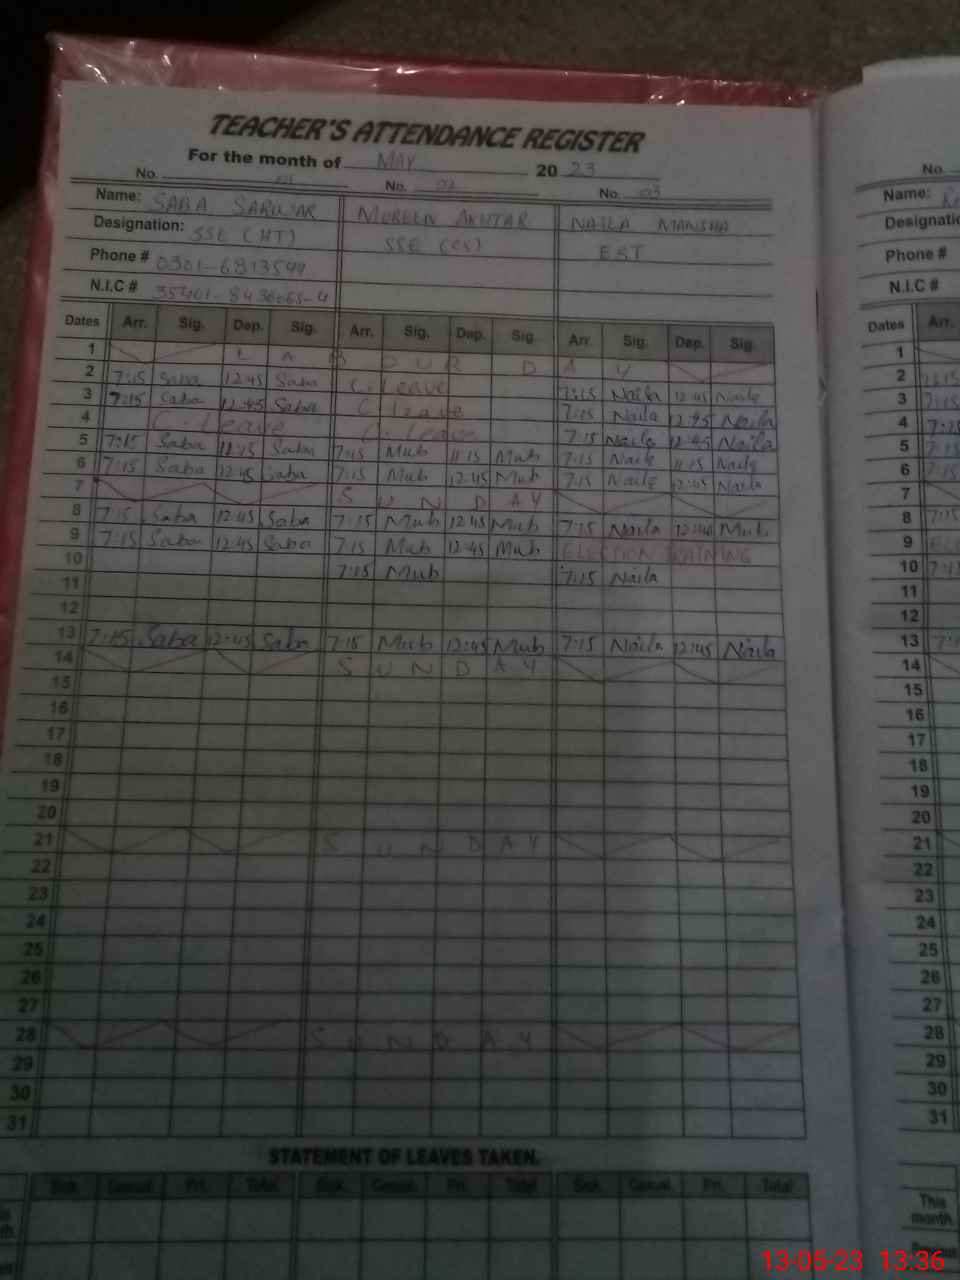 TEACHER'S ATTENDANCE REGISTER
For the month of MAY 20 23
No. 01 No. 02 No. 03
Name: SABA SARWAR MUBEEN AKHTAR NAILA MANSHA
Designation: SSE (HT) SSE (CS) EST
Phone # 0301-6813544
N.I.C # 35401-8436065-4
Dates Arr. Sig. Dep. Sig. Arr. Sig. Dep. Sig. Arr. Sig. Dep. Sig.
1 L A B O U R D A Y
2 7:15 Saba 12:45 Saba C. Leave 7:15 Naila 12:45 Naila
3 7:15 Saba 12:45 Saba C leave 7:15 Naila 12:45 Naila
4 C. Leave C. Leave 7:15 Naila 12:45 Naila
5 7:15 Saba 11:15 Saba 7:15 Mub 11:15 Mub 7:15 Naila 11:15 Naila
6 7:15 Saba 12:45 Saba 7:15 Mub 12:45 Mub 7:15 Naila 12:45 Naila
7 S U N D A Y
8 7:15 Saba 12:45 Saba 7:15 Mub 12:45 Mub 7:15 Naila Mub
9 7:15 Saba 12:45 Saba 7:15 Mub 12:45 Mub ELECTION TRAINING
10 7:15 Mub 7:15 Naila
11
12
13 7:15 Saba 12:45 Saba 7:15 Mub 12:45 Mub 7:15 Naila 12:45 Naila
14 S U N D A Y
15
16
17
18
19
20
21 S U N D A Y
22
23
24
25
26
27
28 S U N D A Y
29
30
31
STATEMENT OF LEAVES TAKEN.
Sick. Casual. Pri. Total Sick. Casual. Pri. Total Sick. Casual. Pri. Total
No.
Name:
Designatio
Phone #
N.I.C #
Dates Arr.
1
2 7:15
3 7:15
4 7:15
5 7:15
6 7:15
7
8 7:15
9
10 7:15
11
12
13
14
15
16
17
18
19
20
21
22
23
24
25
26
27
28
29
30
31
This
month.
13-05-23 13:36